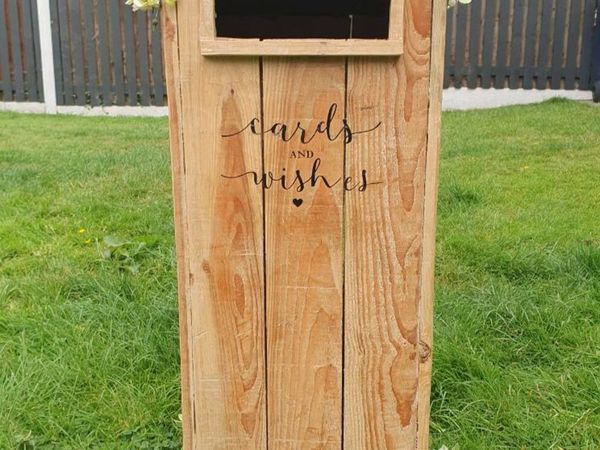 cards
AND
wishes